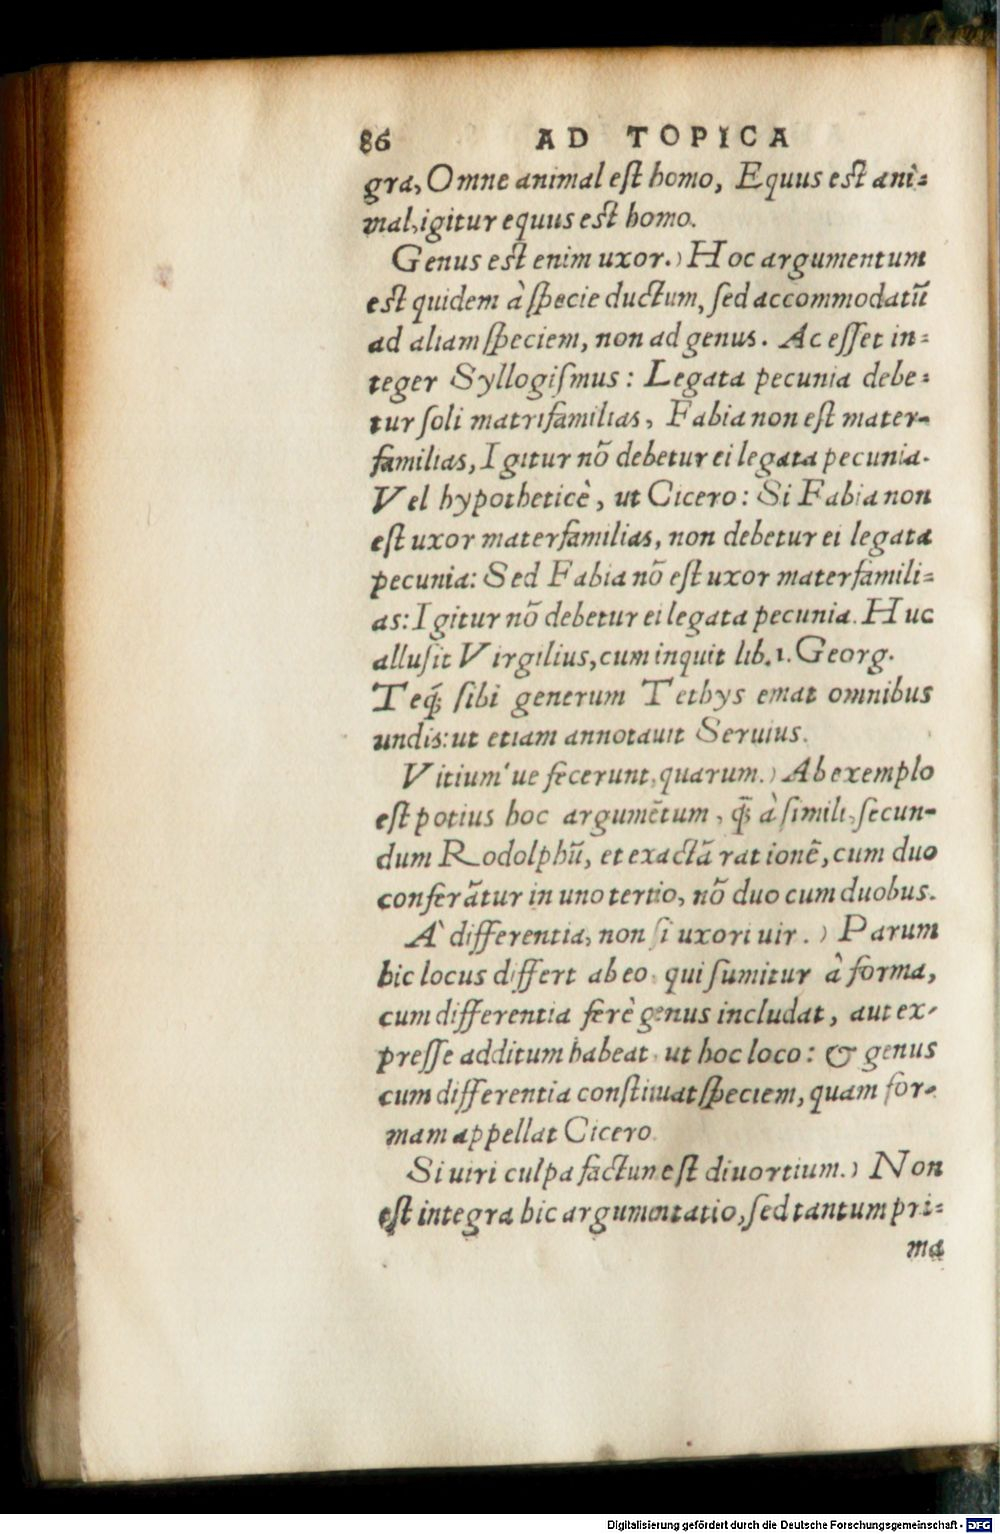 86 AD TOPICA
gra, Omne animal est homo, Equus est ani-
mal, igitur equus est homo.
Genus est enim uxor.) Hoc argumentum
est quidem à specie ductum, sed accommodatũ
ad aliam speciem, non ad genus. Ac esset in-
teger Syllogismus: Legata pecunia debe-
tur soli matrifamilias, Fabia non est mater-
familias, Igitur nõ debetur ei legata pecunia.
Vel hypotheticè, ut Cicero: Si Fabia non
est uxor materfamilias, non debetur ei legata
pecunia: Sed Fabia nõ est uxor materfamili-
as: Igitur nõ debetur ei legata pecunia. Huc
allusit Virgilius, cum inquit lib. 1. Georg.
Teq́; sibi generum Tethys emat omnibus
undis: ut etiam annotauit Seruius.
Vitium'ue fecerunt, quarum.) Ab exemplo
est potius hoc argumẽtum, q̃; à simili, secun-
dum Rodolphũ, et exactã rationẽ, cum duo
conferãtur in uno tertio, nõ duo cum duobus.
A` differentia, non si uxori uir.) Parum
hic locus differt ab eo, qui sumitur à forma,
cum differentia ferè genus includat, aut ex-
presse additum habeat, ut hoc loco: & genus
cum differentia constituat speciem, quam for-
mam appellat Cicero.
Si uiri culpa factum est diuortium.) Non
est integra hic argumentatio, sed tantum pri-
ma
Digitalisierung gefördert durch die Deutsche Forschungsgemeinschaft - DFG